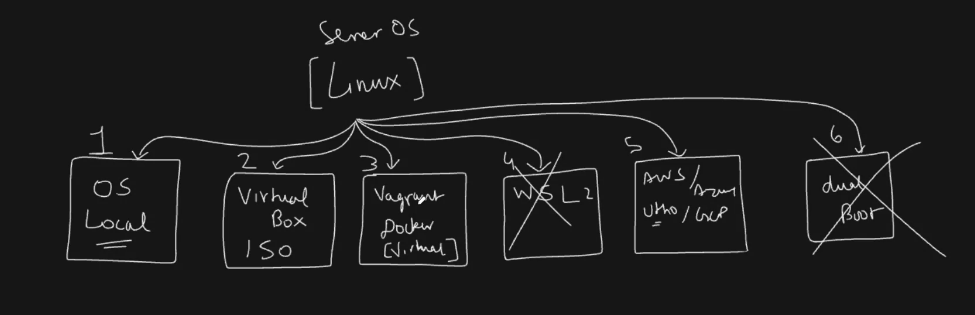 Server OS
[Linux]
1
OS
Local
2
Virtual
Box
ISO
3
Vagrant
Docker
[Virtual]
4
WSL2
5
AWS/Azure
Utho/GCP
6
dual
Boot